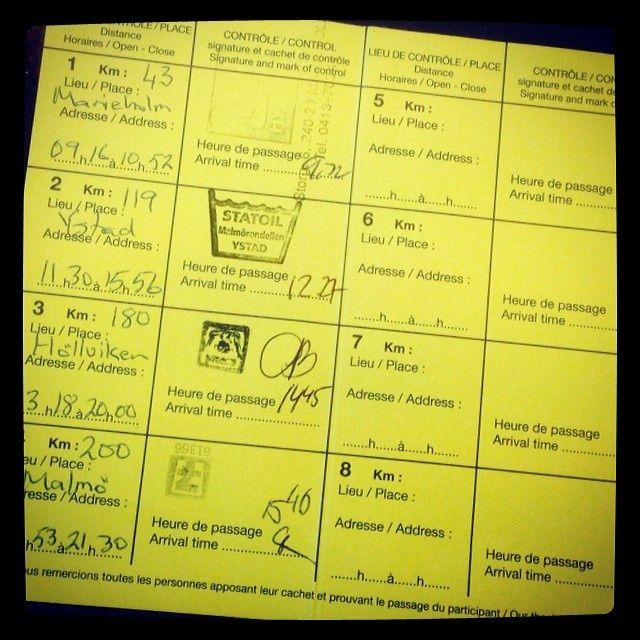 CONTRÔLE / PLACE
Distance
Horaires / Open - Close
CONTRÔLE / CONTROL
signature et cachet de contrôle
Signature and mark of control
LIEU DE CONTRÔLE / PLACE
Distance
Horaires / Open - Close
CONTRÔLE / CON
signature et cachet d
Signature and mark o
1 Km : 43
Lieu / Place :
Marieholm
Adresse / Address :
09 h 16 à 10 h 52
Tel. 0413-
Heure de passage
Arrival time
2 Km : 119
Lieu / Place :
Ystad
Adresse / Address :
11 h 30 à 15 h 56
STATOIL
Malmörondellen
YSTAD
Heure de passage
Arrival time 12.27
3 Km : 180
Lieu / Place :
Höllviken
Adresse / Address :
3 h 18 à 20 h 00
Heure de passage
Arrival time 1445
Km : 200
eu / Place :
Malmö
resse / Address :
h 53 à 21 h 30
61366
1540
Heure de passage
Arrival time
5 Km :
Lieu / Place :
Adresse / Address :
h à h
Heure de passage
Arrival time
6 Km :
Lieu / Place :
Adresse / Address :
h à h
Heure de passage
Arrival time
7 Km :
Lieu / Place :
Adresse / Address :
h à h
Heure de passage
Arrival time
8 Km :
Lieu / Place :
Adresse / Address :
h à h
Heure de passage
Arrival time
ous remercions toutes les personnes apposant leur cachet et prouvant le passage du participant / Our